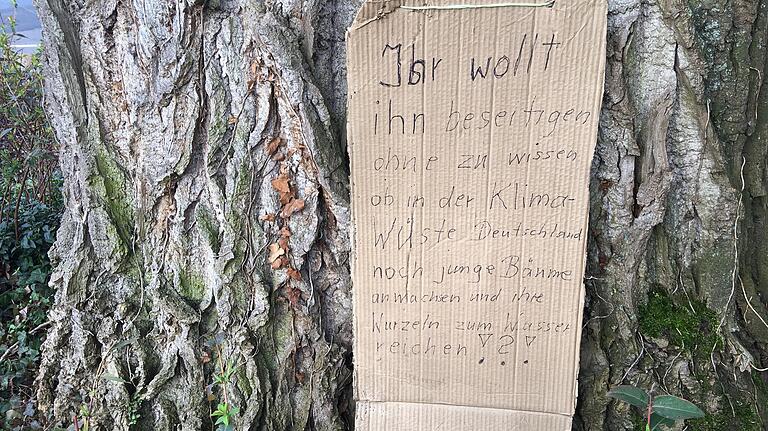 Ihr wollt
ihn beseitigen
ohne zu wissen
ob in der Klima-
Wüste Deutschland
noch junge Bäume
anwachsen und ihre
Wurzeln zum Wasser
reichen!?!